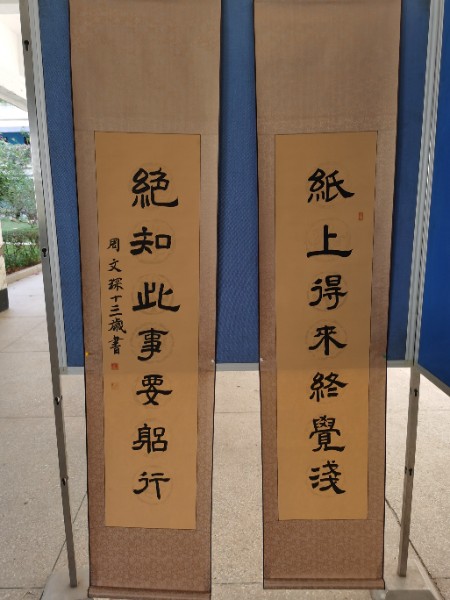 紙上得来終覺淺
絶知此事要躳行
周文琛十三歲書